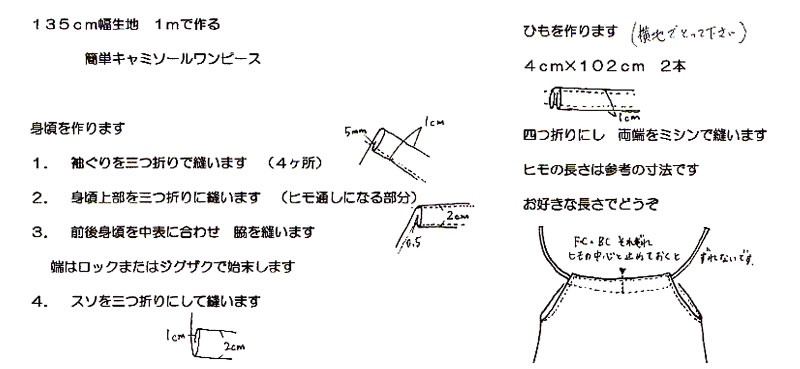 135cm幅生地　1mで作る
簡単キャミソールワンピース
身頃を作ります
5mm
1cm
1.　袖ぐりを三つ折りで縫います　(4ヶ所)
2.　身頃上部を三つ折りに縫います　(ヒモ通しになる部分)
2cm
0.5
3.　前後身頃を中表に合わせ　脇を縫います
端はロックまたはジグザクで始末します
4.　スソを三つ折りにして縫います
1cm
2cm
ひもを作ります (横地でとって下さい)
4cm×102cm　2本
1cm
四つ折りにし　両端をミシンで縫います
ヒモの長さは参考の寸法です
お好きな長さでどうぞ
FC・BC それぞれ
ヒモの中心と止めておくと
ずれないです。